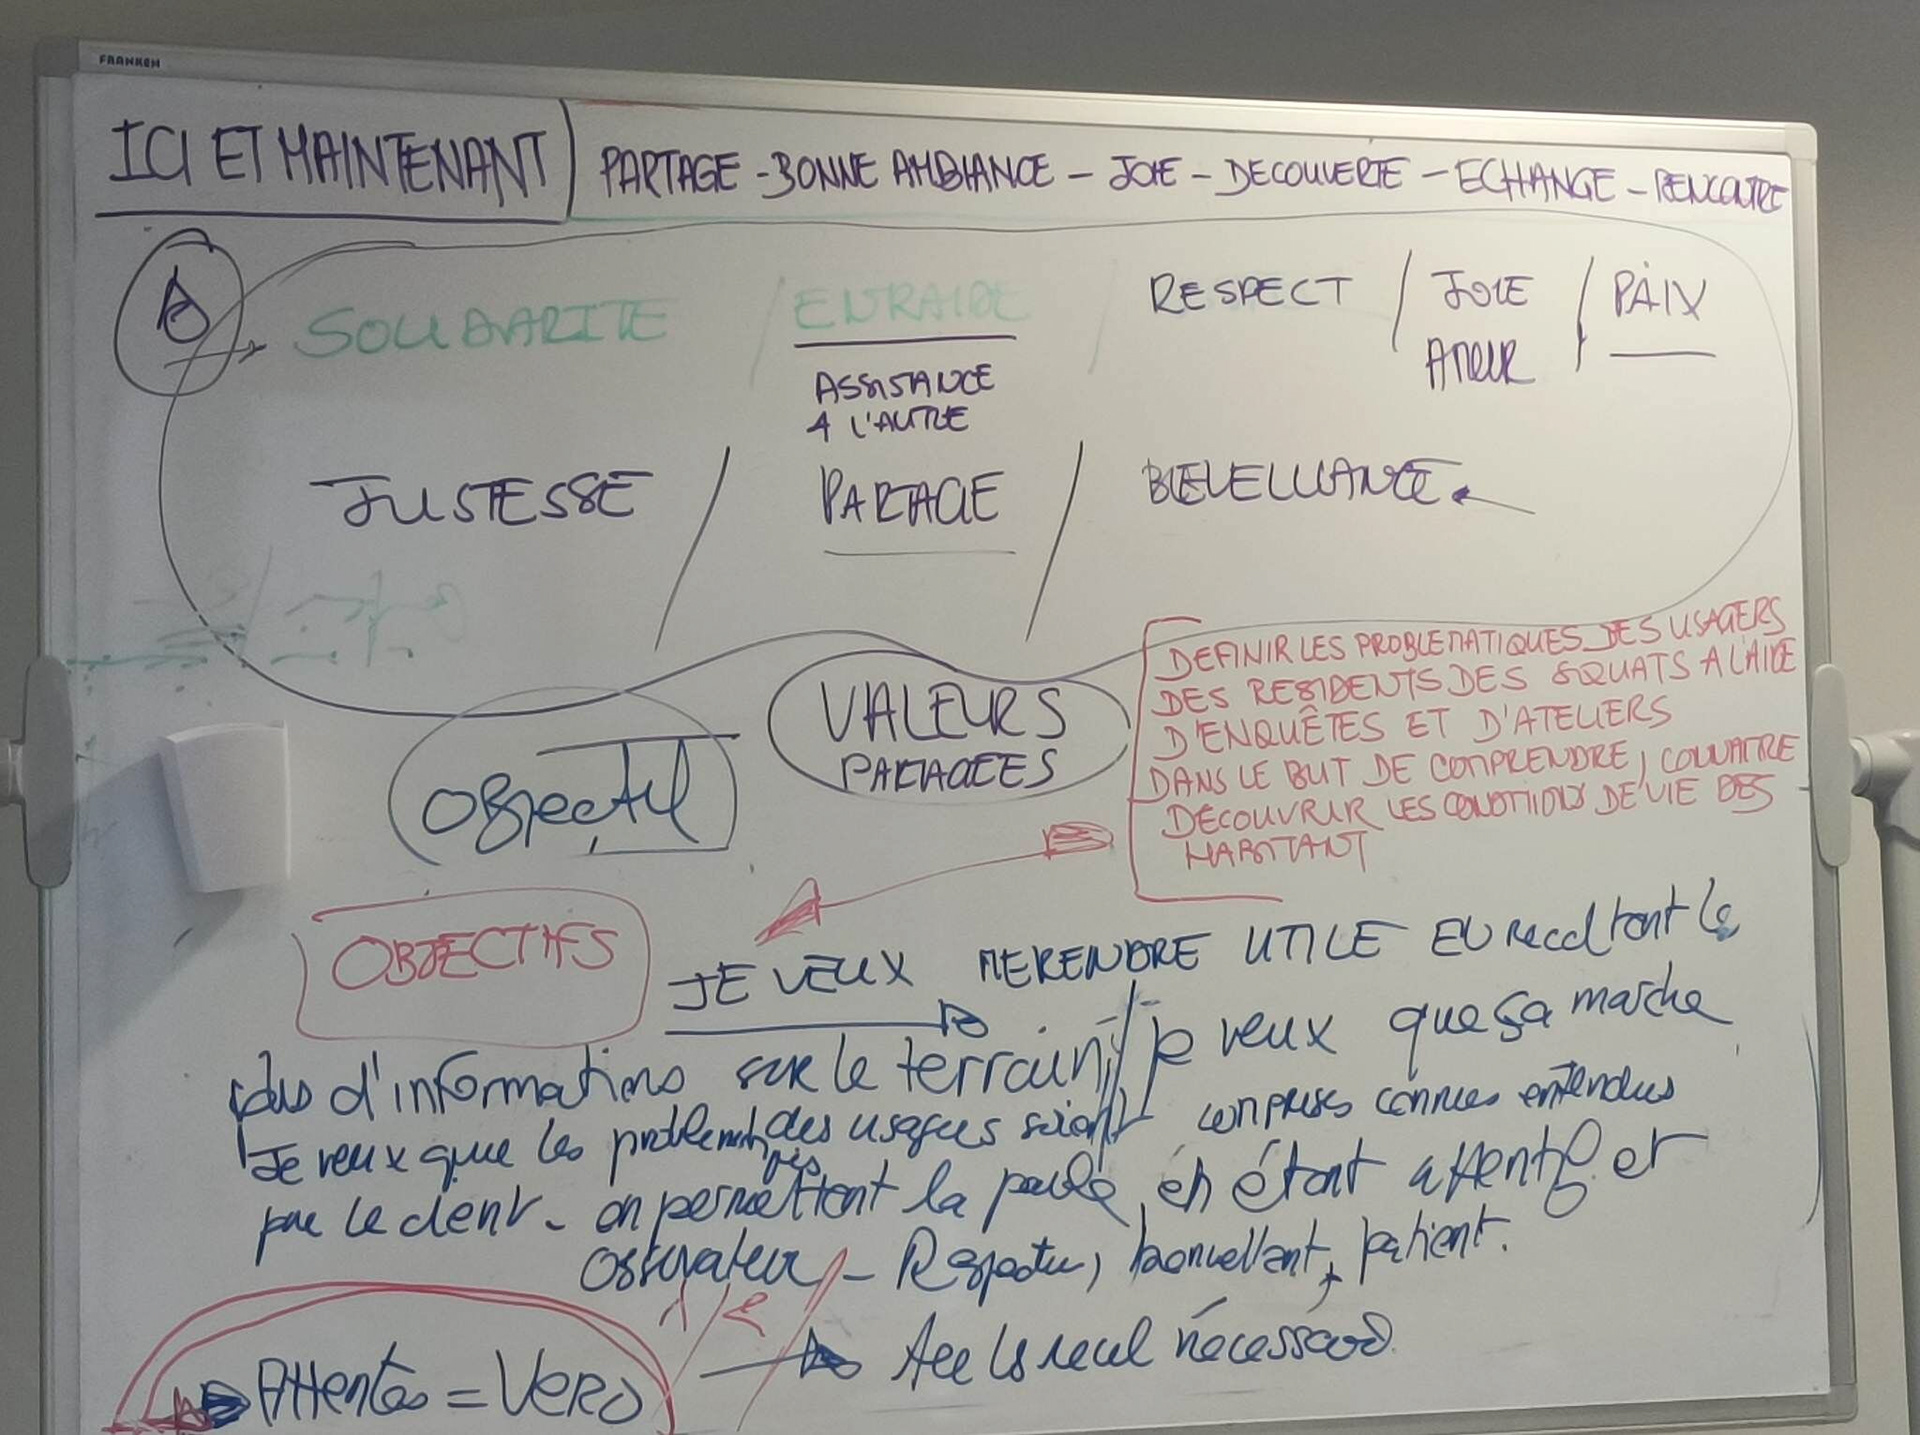 FRANKEN
ICI ET MAINTENANT
PARTAGE - BONNE AMBIANCE - JOIE - DECOUVERTE - ECHANGE - RENCONTRE
SOLIDARITE / ENTRAIDE / RESPECT / JOIE / PAIX
AMOUR
ASSISTANCE
A L'AUTRE
JUSTESSE / PARTAGE / BIEVEILLANCE
VALEURS
PARTAGEES
DEFINIR LES PROBLEMATIQUES DES USAGERS
DES RESIDENTS DES SQUATS A L'AIDE
D'ENQUÊTES ET D'ATELIERS
DANS LE BUT DE COMPRENDRE, CONNAITRE
DECOUVRIR LES CONDITIONS DE VIE DES
HABITANT
Objectif
OBJECTIFS
JE VEUX ME RENDRE UTILE EN recoltant le
plus d'informations sur le terrain // je veux que ça marche
Je veux que les problématiques des usagers soient comprises connues entendues
par le client - en permettant la parole, en étant attentif et
observateur - Respectueux, bienveillant, patient.
1 / 2
Attentes = Vero
Avec le recul nécessaire